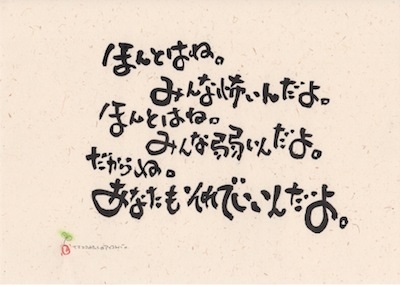 ほんとはね。
みんな怖いんだよ。
ほんとはね。
みんな弱いんだよ。
だからね。
あなたもそれでいいんだよ。